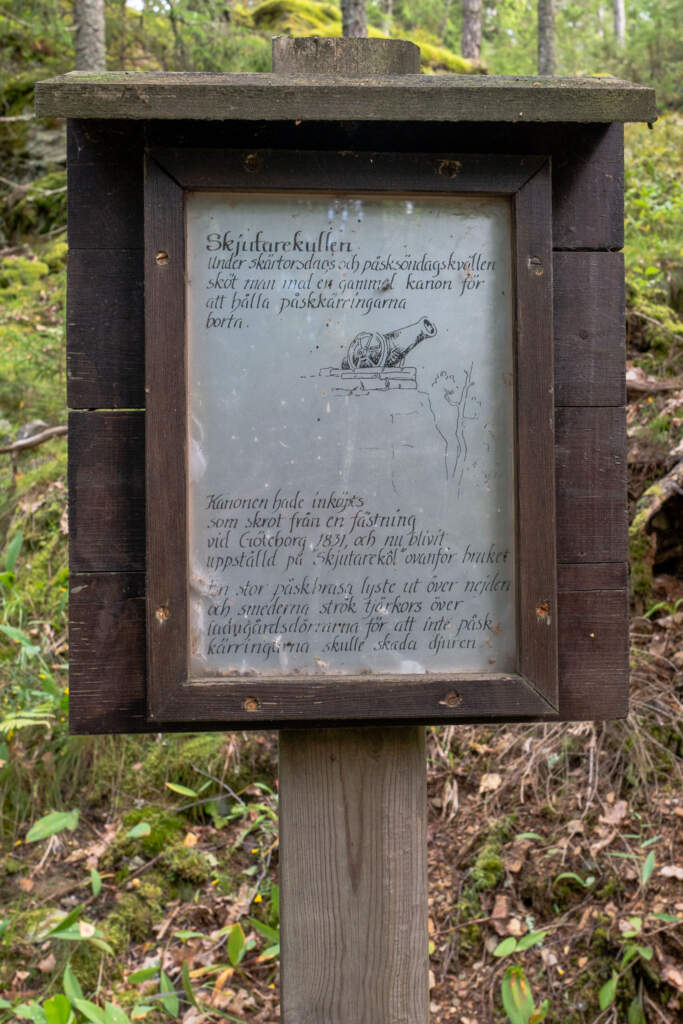 Skjutarekullen
Under skärtorsdags och påsksöndagskvällen
sköt man med en gammal kanon för
att hålla påskkärringarna
borta.
Kanonen hade inköpts
som skrot från en fästning
vid Göteborg 1831, och nu blivit
uppställd på "Skjutareköl" ovanför bruket
En stor påskbrasa lyste ut över nejden
och smederna strök tjärkors över
ladugårdsdörrarna för att inte påsk
kärringarna skulle skada djuren